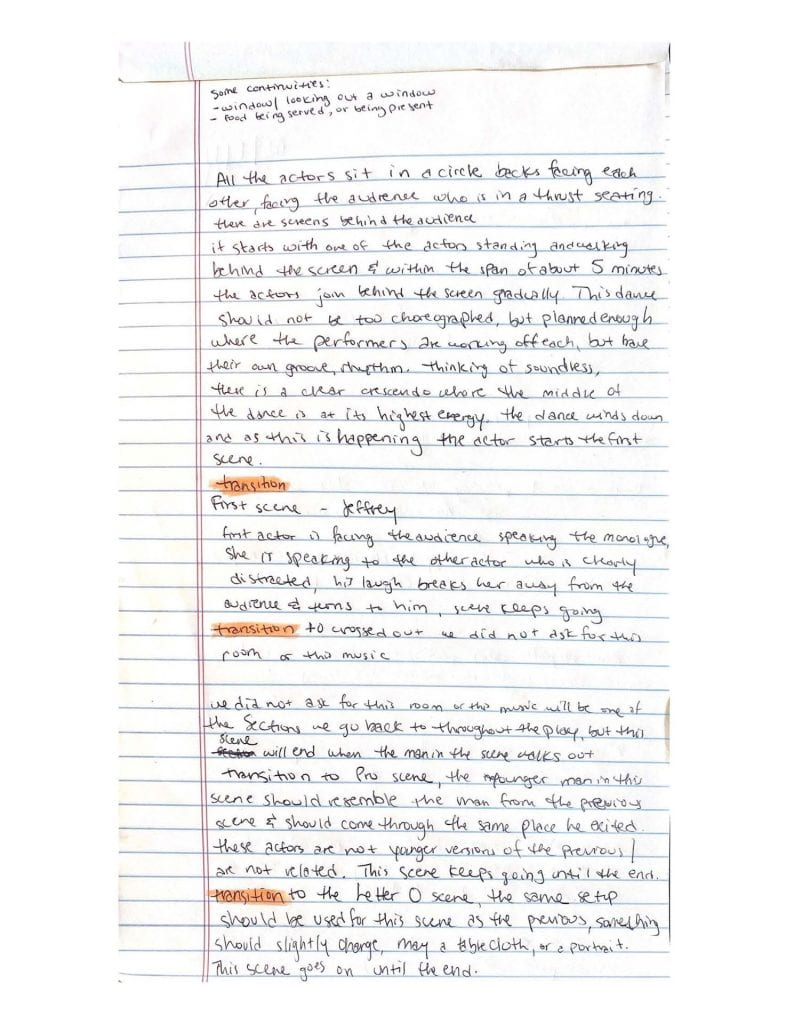 some continuities:
- window/ looking out a window
- food being served, or being present
All the actors sit in a circle backs facing each
other, facing the audience who is in a thrust seating.
there are screens behind the audience
it starts with one of the actors standing and walking
behind the screen & within the span of about 5 minutes
the actors join behind the screen gradually. This dance
should not be too choreographed, but planned enough
where the performers are working off each, but have
their own groove, rhythm. thinking of soundless,
there is a clear crescendo where the middle of
the dance is at its highest energy. the dance winds down
and as this is happening the actor starts the first
scene.
transition
First scene - Jeffrey
first actor is facing the audience speaking the monologue,
she is speaking to the other actor who is clearly
distracted, his laugh breaks her away from the
audience & turns to him, scene keeps going
transition to crossed out we did not ask for this
room or this music
we did not ask for this room or this music will be one of
the sections we go back to throughout the play, but this
scene
section will end when the man in the scene walks out
transition to Pro scene, the younger man in this
scene should resemble the man from the previous
scene & should come through the same place he exited.
these actors are not younger versions of the previous/
are not related. This scene keeps going until the end.
transition to the Letter O scene, the same setup
should be used for this scene as the previous, something
should slightly change, may a table cloth, or a portrait.
This scene goes on until the end.